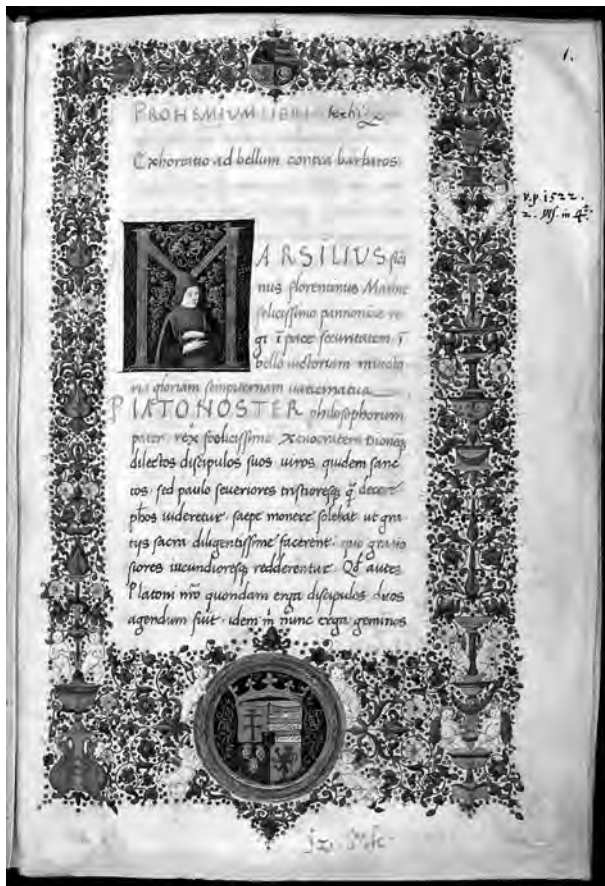 1.
PROHEMIUM LIBRI
Exhortatio ad bellum contra barbaros
v.p. 1522
MARSILIUS fici
nus florentinus Mathie
felicissimo pannonie re
gi ī pace securitatem ī
bello victoriam
gloriam sempiternam
PLATO NOSTER philosophorum
pater rex foelicissime Xenocratem Dionēq
dilectos discipulos suos uiros quidem sanc
tos sed paulo seueriores tristioresq q̄ decere
phos uideretur saepe monere solebat ut gra
tys sacra diligentissime facerent quo gratio
siores iucundioresq redderentur Qd autē
Platoni nr̄o quondam erga discipulos duos
agendum fuit idem m̄ nunc erga geminos